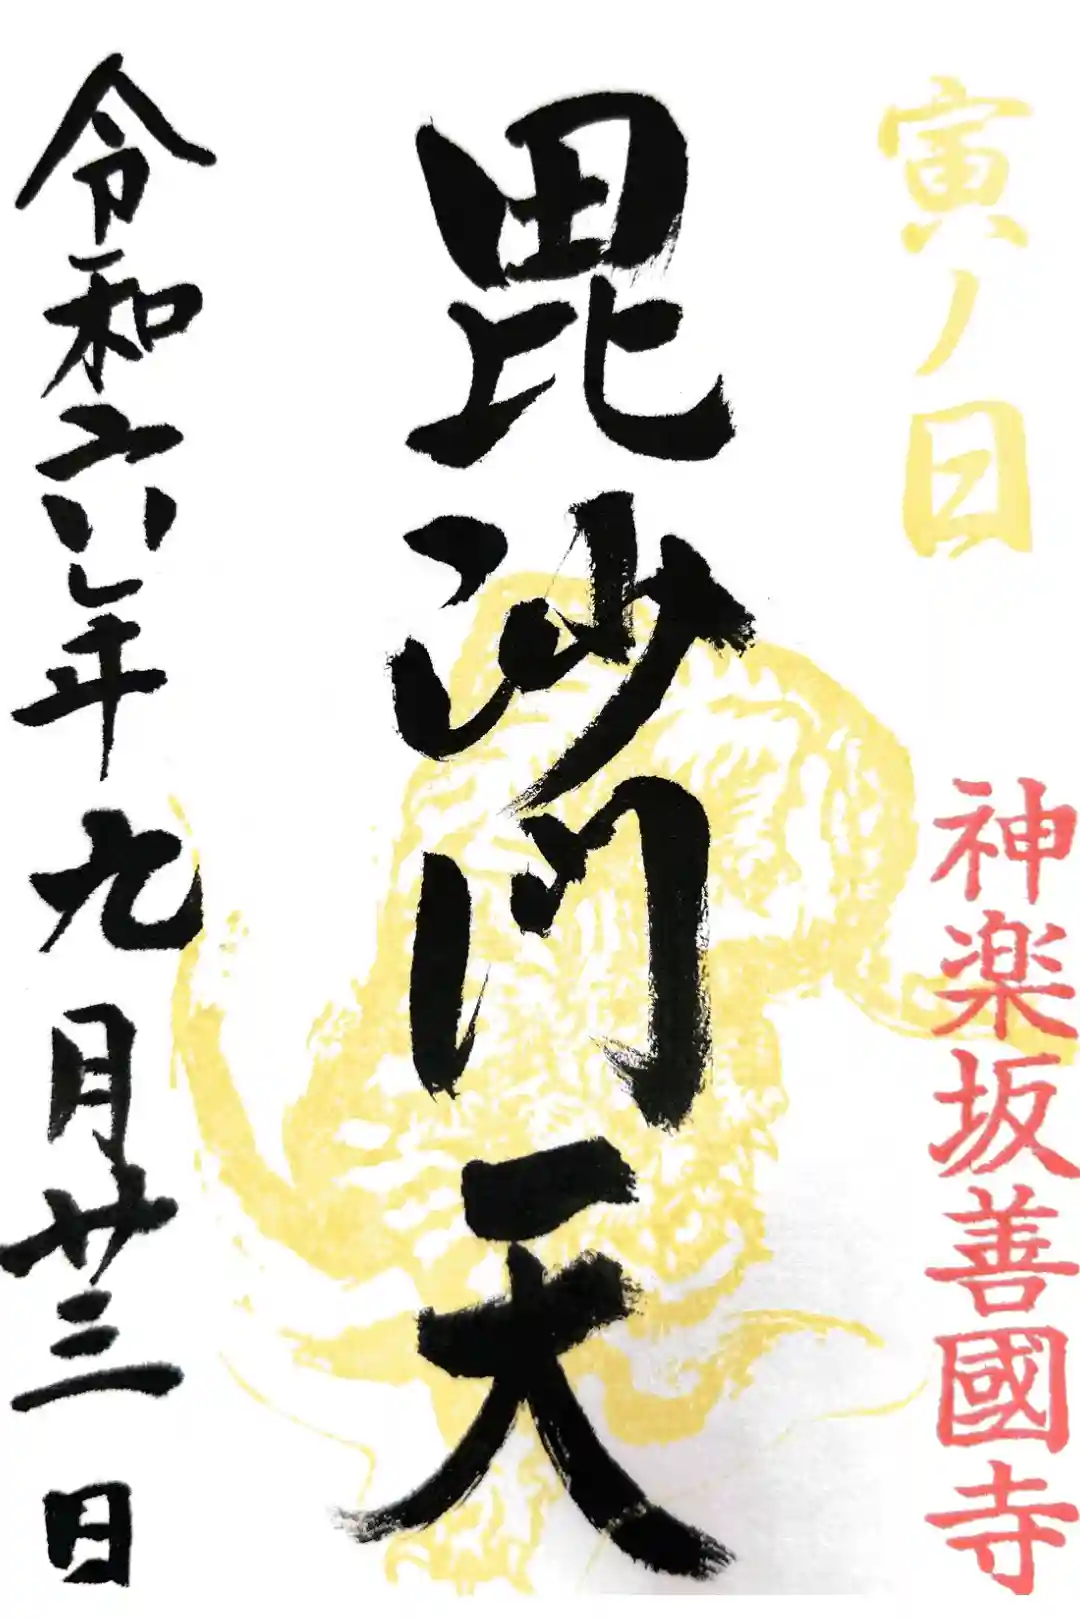 寅ノ日
神楽坂善國寺
毘沙門天
令和六年九月廿三日